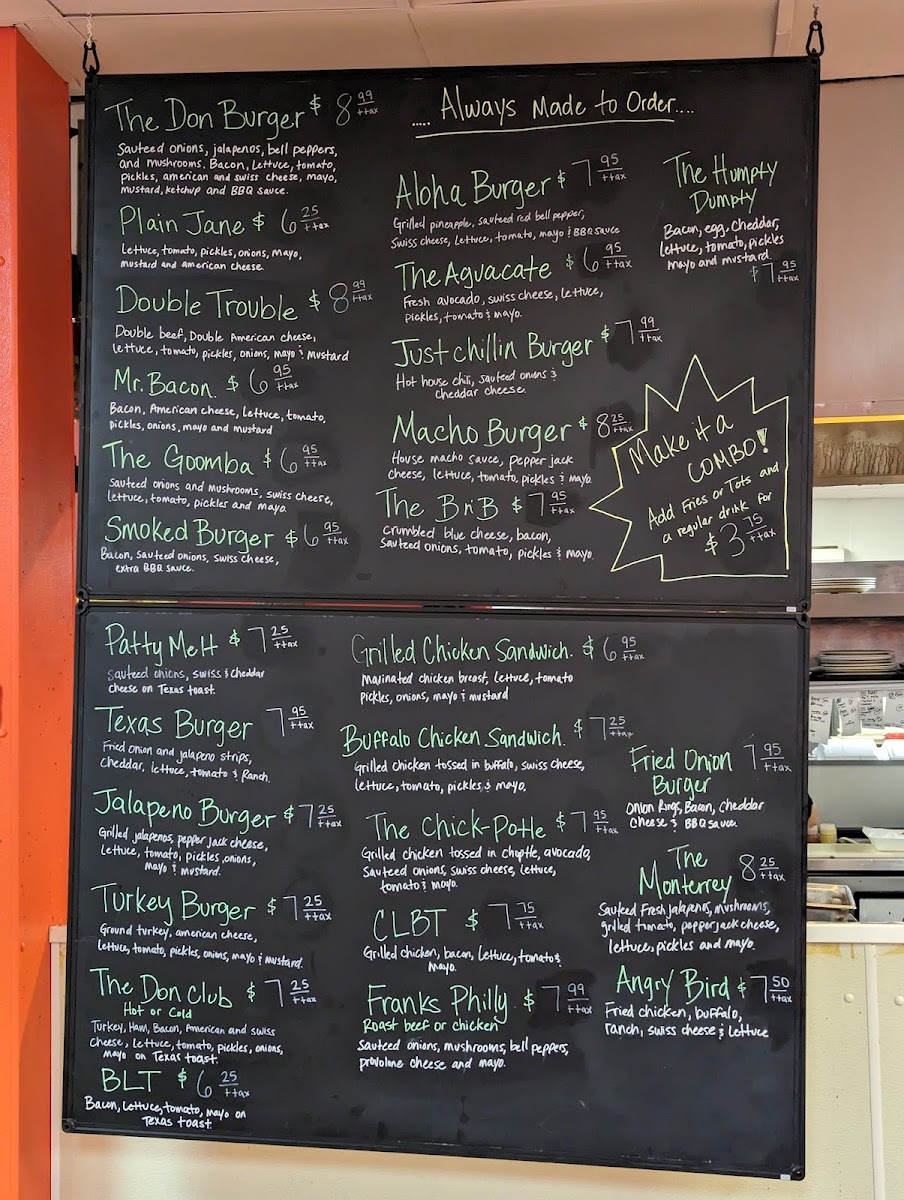 The Don Burger $ 8 99 ++ax
Sauteed onions, jalapenos, bell peppers,
and mushrooms. Bacon, Lettuce, tomato,
pickles, american and swiss cheese, mayo,
mustard, ketchup and BBQ sauce.
Plain Jane $ 6 25 ++ax
lettuce, tomato, pickles, onions, mayo,
mustard and american cheese.
Double Trouble $ 8 99 ++ax
Double beef, Double American cheese,
lettuce, tomato, pickles, onions, mayo & Mustard
Mr. Bacon. $ 6 95 ++ax
Bacon, American cheese, lettuce, tomato,
pickles, onions, mayo and mustard
The Goomba $ 6 95 ++ax
Sauteed onions and mushrooms, swiss cheese,
lettuce, tomato, pickles and mayo.
Smoked Burger $ 6 95 ++ax
Bacon, Sauteed onions, Swiss cheese,
extra BBQ sauce.
..... Always Made to Order....
Aloha Burger $ 7 95 ++ax
Grilled pineapple, sauteed red bell pepper,
Swiss cheese, Lettuce, tomato, mayo & BBQ sauce
The Aguacate $ 6 95 ++ax
Fresh avocado, swiss cheese, lettuce,
pickles, tomato & mayo.
Just chillin Burger $ 7 99 ++ax
Hot house chili, sauteed onions &
cheddar cheese.
Macho Burger $ 8 25 ++ax
House macho sauce, pepper jack
cheese, lettuce, tomato, pickles & mayo.
The BnB $ 7 95 ++ax
Crumbled blue cheese, bacon,
Sauteed onions, tomato, pickles & mayo.
The Humpty
Dumpty
Bacon, egg, cheddar,
lettuce, tomato, pickles
mayo and mustard.
$ 7 95 ++ax
Make it a
COMBO!
Add Fries or Tots and
a regular drink for
$ 3 75 ++ax
Patty Melt $ 7 25 ++ax
Sauteed onions, swiss & cheddar
cheese on Texas toast.
Texas Burger 7 95 ++ax
Fried onion and jalapeno strips,
Cheddar, lettuce, tomato & Ranch.
Jalapeno Burger $ 7 25 ++ax
Grilled jalapenos, pepper jack cheese,
lettuce, tomato, pickles, onions,
mayo & mustard.
Turkey Burger $ 7 25 ++ax
Ground turkey, american cheese,
lettuce, tomato, pickles, onions, mayo & mustard.
The Don Club $ 7 25 ++ax
Hot or Cold
Turkey, Ham, Bacon, American and swiss
Cheese, Lettuce, tomato, pickles, onions,
mayo on Texas toast.
BLT $ 6 25 ++ax
Bacon, Lettuce, tomato, mayo on
Texas toast.
Grilled Chicken Sandwich. $ 6 95 ++ax
Marinated chicken breast, lettuce, tomato
pickles, onions, mayo & mustard
Buffalo Chicken Sandwich. $ 7 25 ++ax
Grilled chicken tossed in buffalo, swiss cheese,
lettuce, tomato, pickles & mayo.
The Chick-Potle $ 7 95 ++ax
Grilled chicken tossed in chiptle, avocado,
Sauteed onions, Swiss cheese, lettuce,
tomato & mayo.
CLBT $ 7 75 ++ax
Grilled chicken, bacon, lettuce, tomato &
mayo.
Franks Philly $ 7 99 ++ax
Roast beef or chicken
Sauteed onions, mushrooms, bell peppers,
provolone cheese and mayo.
Fried Onion 7 95 ++ax
Burger
Onion Rings, Bacon, cheddar
cheese & BBQ sauce.
The
Monterrey 8 25 ++ax
Sauteed Fresh jalapenos, mushrooms,
grilled tomato, pepper jack cheese,
lettuce, pickles and mayo.
Angry Bird $ 7 50 ++ax
Fried chicken, buffalo,
ranch, swiss cheese & Lettuce